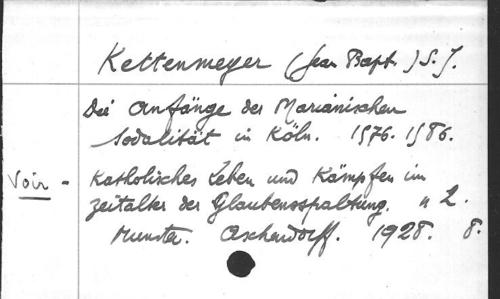 Kettenmeyer (Jean Bapt.) S.J.
Die Anfänge der Marianischen
Sodalität in Köln. 1576-1586.
Voir - Katholisches Leben und Kämpfen im
Zeitalter der Glaubensspaltung. n 2.
Munster. Aschendorff. 1928. 8.